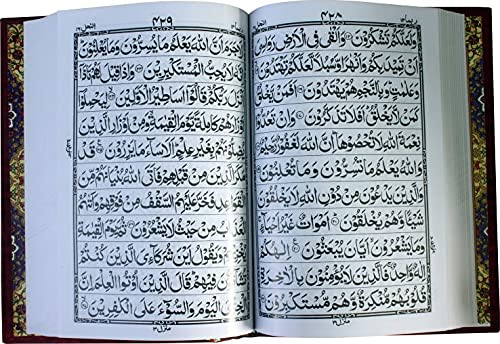 ۴۲۸
وَلَعَلَّكُمْ تَشْكُرُوْنَ وَاَلْقٰى فِى الْاَرْضِ رَوَاسِىَ
اَنْ تَمِيْدَ بِكُمْ وَاَنْهٰرًا وَّسُبُلًا لَّعَلَّكُمْ تَهْتَدُوْنَ
وَعَلٰمٰتٍ وَبِالنَّجْمِ هُمْ يَهْتَدُوْنَ اَفَمَنْ يَّخْلُقُ
كَمَنْ لَّا يَخْلُقُ اَفَلَا تَذَكَّرُوْنَ وَاِنْ تَعُدُّوْا
نِعْمَةَ اللّٰهِ لَا تُحْصُوْهَا اِنَّ اللّٰهَ لَغَفُوْرٌ رَّحِيْمٌ
وَاللّٰهُ يَعْلَمُ مَا تُسِرُّوْنَ وَمَا تُعْلِنُوْنَ
وَالَّذِيْنَ يَدْعُوْنَ مِنْ دُوْنِ اللّٰهِ لَا يَخْلُقُوْنَ
شَيْئًا وَّهُمْ يُخْلَقُوْنَ اَمْوَاتٌ غَيْرُ اَحْيَآءٍ
وَمَا يَشْعُرُوْنَ اَيَّانَ يُبْعَثُوْنَ اِلٰهُكُمْ
اِلٰهٌ وَّاحِدٌ فَالَّذِيْنَ لَا يُؤْمِنُوْنَ بِالْاٰخِرَةِ
قُلُوْبُهُمْ مُّنْكِرَةٌ وَّهُمْ مُّسْتَكْبِرُوْنَ
منزل ۳
النحل
۴۲۹
لَا جَرَمَ اَنَّ اللّٰهَ يَعْلَمُ مَا يُسِرُّوْنَ وَمَا يُعْلِنُوْنَ
اِنَّهٗ لَا يُحِبُّ الْمُسْتَكْبِرِيْنَ وَاِذَا قِيْلَ لَهُمْ مَّاذَآ
اَنْزَلَ رَبُّكُمْ قَالُوْٓا اَسَاطِيْرُ الْاَوَّلِيْنَ لِيَحْمِلُوْٓا
اَوْزَارَهُمْ كَامِلَةً يَّوْمَ الْقِيٰمَةِ وَمِنْ اَوْزَارِ الَّذِيْنَ
يُضِلُّوْنَهُمْ بِغَيْرِ عِلْمٍ اَلَا سَآءَ مَا يَزِرُوْنَ قَدْ
مَكَرَ الَّذِيْنَ مِنْ قَبْلِهِمْ فَاَتَى اللّٰهُ بُنْيَانَهُمْ مِّنَ
الْقَوَاعِدِ فَخَرَّ عَلَيْهِمُ السَّقْفُ مِنْ فَوْقِهِمْ وَاَتٰىهُمُ
الْعَذَابُ مِنْ حَيْثُ لَا يَشْعُرُوْنَ ثُمَّ يَوْمَ الْقِيٰمَةِ
يُخْزِيْهِمْ وَيَقُوْلُ اَيْنَ شُرَكَآءِىَ الَّذِيْنَ كُنْتُمْ
تُشَآقُّوْنَ فِيْهِمْ قَالَ الَّذِيْنَ اُوْتُوا الْعِلْمَ اِنَّ
الْخِزْىَ الْيَوْمَ وَالسُّوْٓءَ عَلَى الْكٰفِرِيْنَ
منزل ۳